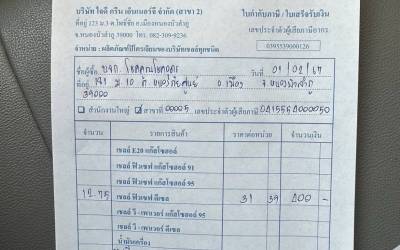 บริษัท ไอดี กรีน เอ็นเนอร์ยี จำกัด (สาขา 2)
ที่อยู่ 123 ม.3 ต.โพธิ์ชัย อ.เมืองหนองบัวลำภู
จ.หนองบัวลำภู 39000 โทร. 082-309-9236
จำหน่าย : ผลิตภัณฑ์ปิโตรเลียมของบริษัทเชลล์ทุกชนิด
ใบกำกับภาษี / ใบเสร็จรับเงิน
เลขประจำตัวผู้เสียภาษีอากร
0395539000126
ชื่อผู้ซื้อ บจก.
วันที่ 01/02/67
ที่อยู่ 171 ม.10 อ.เมือง จ.หนองบัวลำภู
39000
สำนักงานใหญ่ สาขาที่ 00005 เลขประจำตัวผู้เสียภาษี 0415564000050
จำนวน รายการสินค้า ราคาต่อหน่วย จำนวนเงิน
เชลล์ E20 แก๊สโซฮอล์
เชลล์ ฟิวเซฟ แก๊สโซฮอล์ 91
เชลล์ ฟิวเซฟ แก๊สโซฮอล์ 95
12.75 เชลล์ ฟิวเซฟ ดีเซล 31 39 400 -
เชลล์ วี-เพาเวอร์ แก๊สโซฮอล์ 95
เชลล์ วี-เพาเวอร์ ดีเซล
น้ำมันเครื่อง